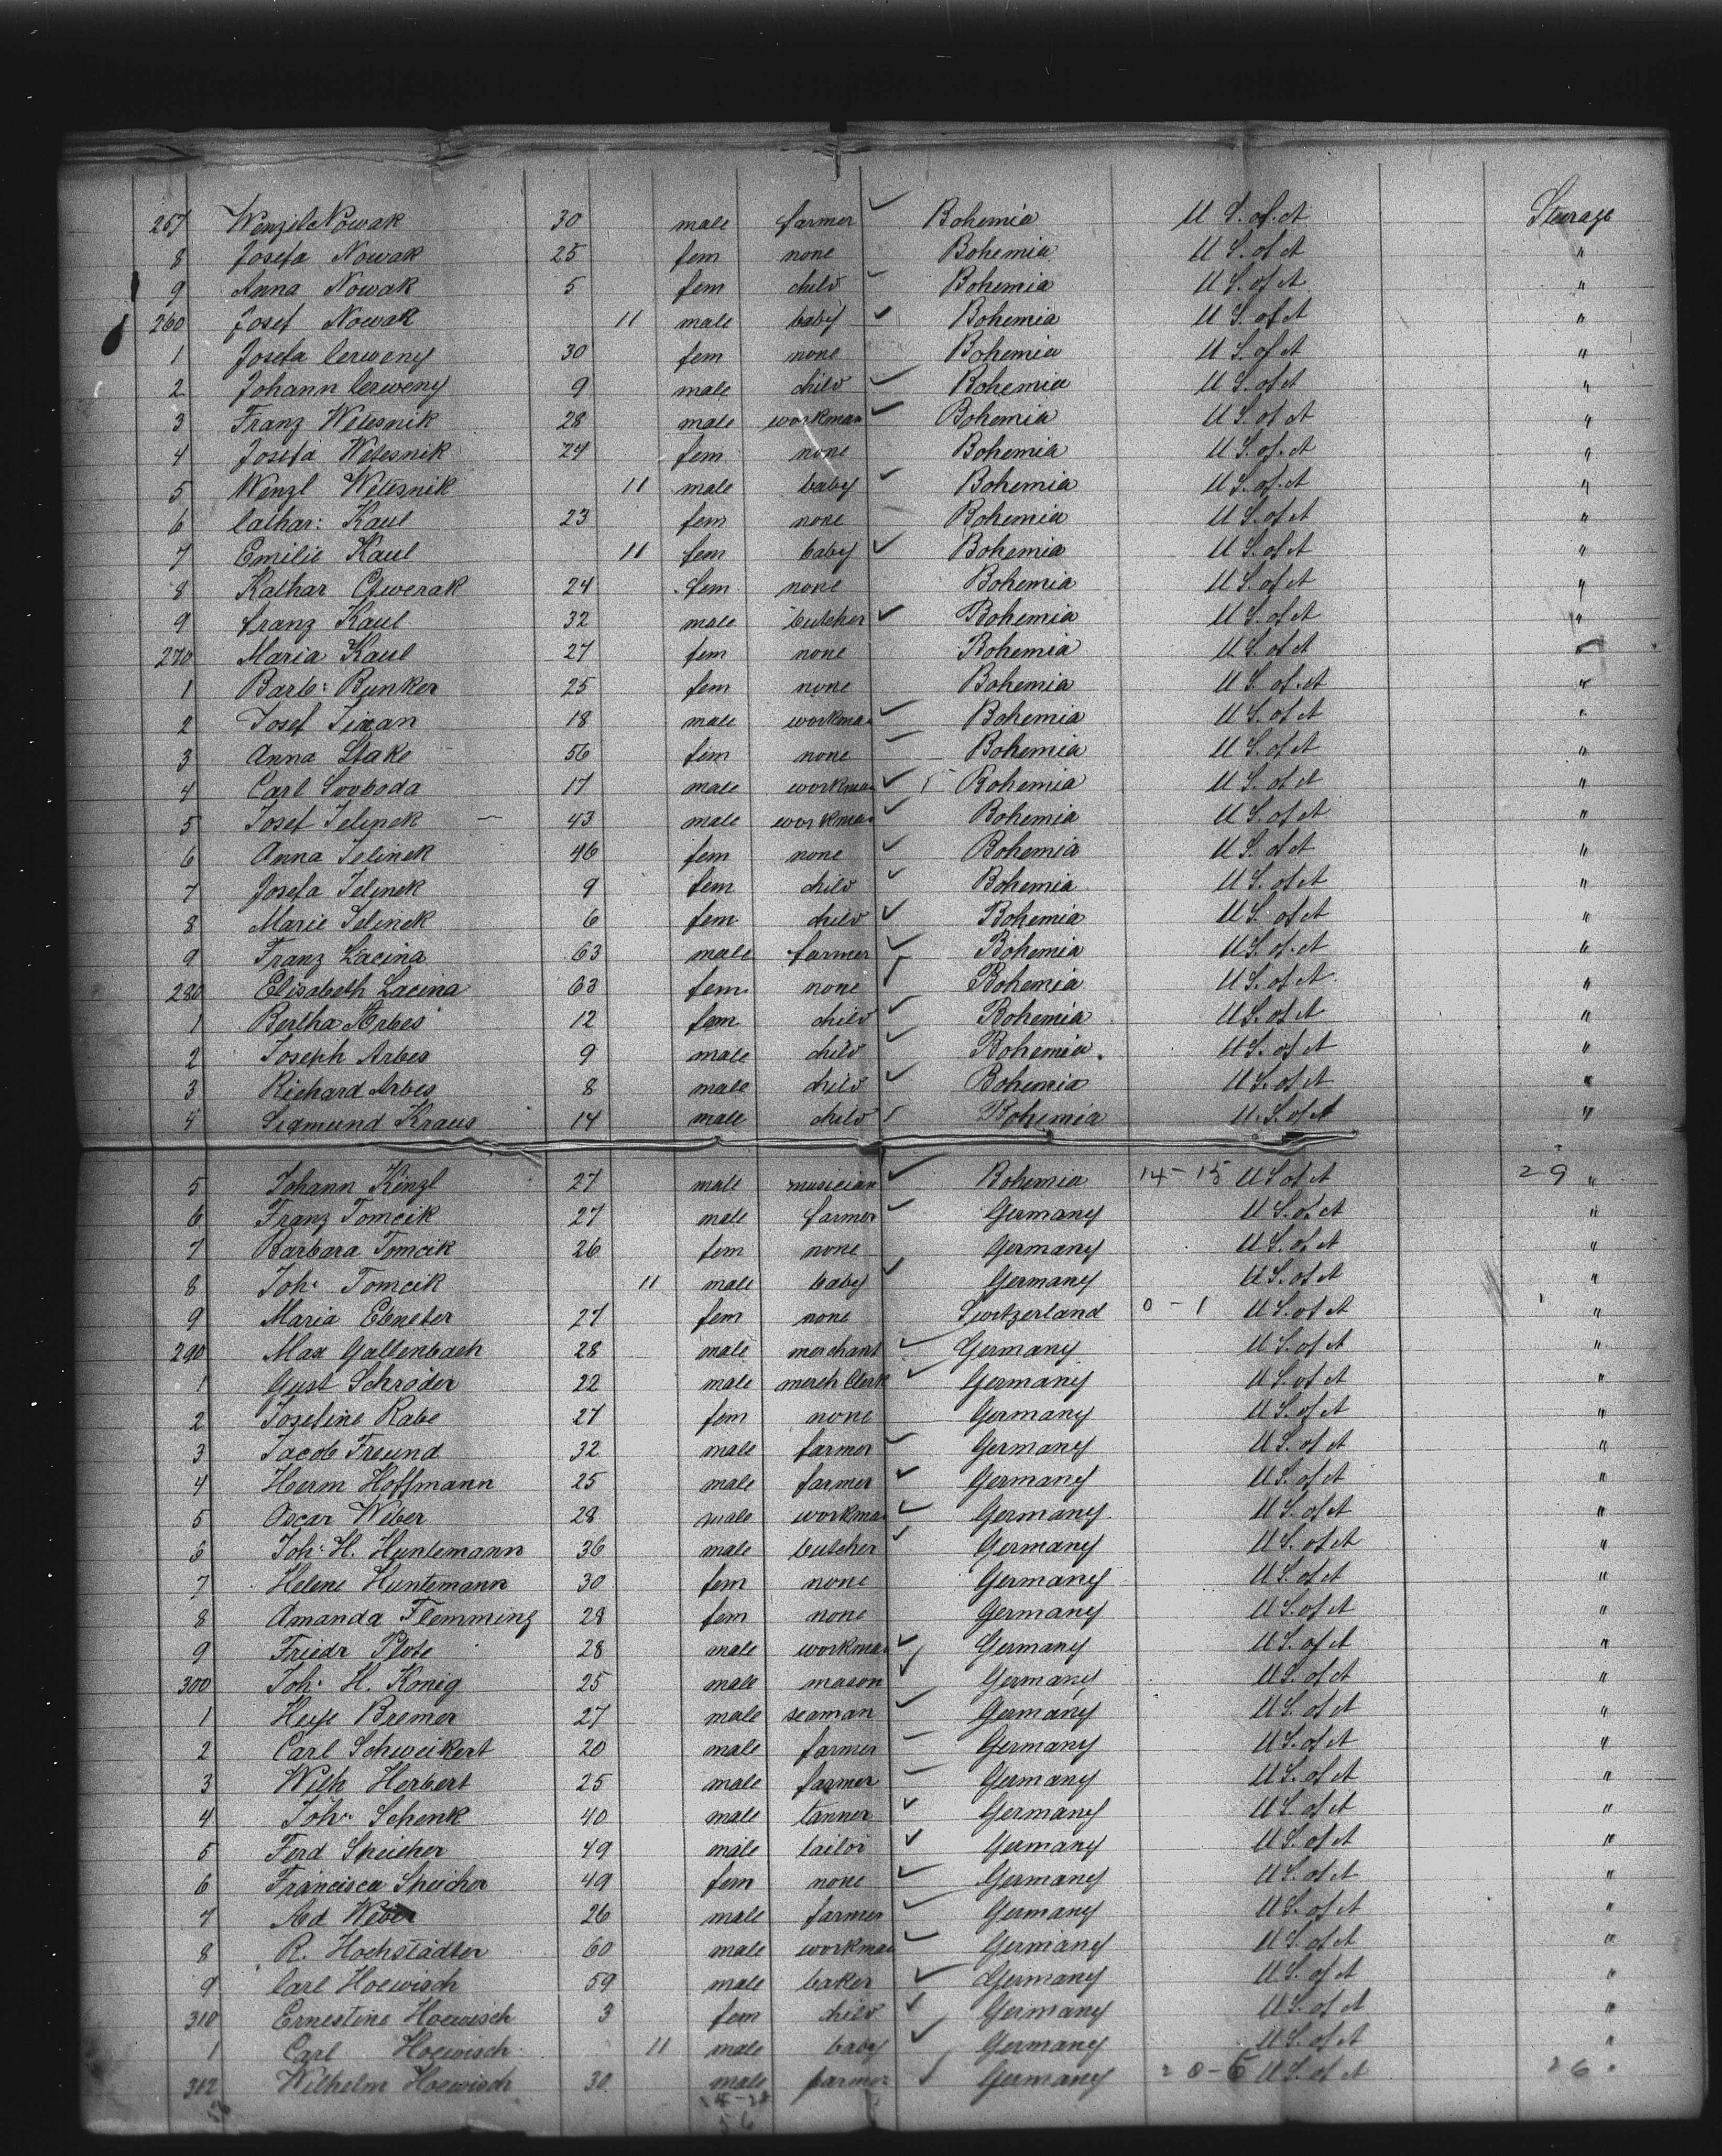 257 Wenzel Nowak 30 male farmer ✓ Bohemia U S. of. A Steerage
8 Josefa Nowak 25 fem none Bohemia U S. of A "
9 Anna Nowak 5 fem child Bohemia U S. of A "
260 Josef Nowak 11 male baby ✓ Bohemia U S. of A "
1 Josefa Cerweny 30 fem none Bohemia U S. of A "
2 Johann Cerweny 9 male child ✓ Bohemia U S. of A "
3 Franz Welesnik 28 male workman ✓ Bohemia U S. of A "
4 Josefa Welesnik 24 fem none Bohemia U S. of. A "
5 Wenzl Welesnik 11 male baby ✓ Bohemia U S. of. A "
6 Cathar: Kaul 23 fem none Bohemia U S. of A "
7 Emilie Kaul 11 fem baby ✓ Bohemia U S. of A "
8 Kathar 24 fem none Bohemia U S. of A "
9 Franz Kaul 32 male butcher ✓ Bohemia U S. of A "
270 Maria Kaul 27 fem none Bohemia U S. of A "
1 Barb: Bunker 25 fem none Bohemia U S. of A "
2 Josef 18 male workman ✓ Bohemia U S. of A "
3 Anna Stake 56 fem none Bohemia U S. of A "
4 Carl Svoboda 17 male workman ✓ Bohemia U S. of A "
5 Josef Jelinek 43 male workman ✓ Bohemia U S. of A "
6 Anna Jelinek 46 fem none ✓ Bohemia U S. of A "
7 Josefa Jelinek 9 fem child ✓ Bohemia U S. of A "
8 Marie Jelinek 6 fem child ✓ Bohemia U S. of A "
9 Franz Lacina 63 male farmer ✓ Bohemia U S. of A "
280 Elisabeth Lacina 63 fem none Bohemia U S. of A "
1 Bertha Arbes 12 fem child ✓ Bohemia U S. of A "
2 Joseph Arbes 9 male child ✓ Bohemia U S. of A "
3 Richard Arbes 8 male child ✓ Bohemia U S. of A "
4 Sigmund Kraus 14 male child Bohemia U. S. of A "
5 Johann Kinzl 27 male musician ✓ Bohemia 14-15 U S of A 29 "
6 Franz Tomcik 27 male farmer ✓ Germany U S. of A "
7 Barbara Tomcik 26 fem none Germany U S. of A "
8 Joh: Tomcik 11 male baby ✓ Germany U S. of A "
9 Maria Ebneter 27 fem none Switzerland 0-1 U S. of A "
290 Max Gallenbach 28 male merchant ✓ Germany U S. of A "
1 Gust Schröder 22 male merch Clerk ✓ Germany U S. of A "
2 Josefine Rabe 27 fem none Germany U S. of A "
3 Jacob Freund 32 male farmer ✓ Germany U S. of A "
4 Herm Hoffmann 25 male farmer ✓ Germany U S. of A "
5 Oscar Weber 28 male workman ✓ Germany U S. of A "
6 Joh: H. Huntemann 36 male butcher ✓ Germany U S. of A "
7 Helene Huntemann 30 fem none Germany U S. of A "
8 Amanda Flemming 28 fem none Germany U S. of A "
9 Friedr Plote 28 male workman ✓ Germany U S. of A "
300 Joh: H. König 25 male mason ✓ Germany U S. of A "
1 Bremer 27 male seaman ✓ Germany U S. of A "
2 Carl Schweikert 20 male farmer Germany U S. of A "
3 Wilh Herbert 25 male farmer Germany U S. of A "
4 Joh: Schenk 40 male tanner ✓ Germany U S. of A "
5 Ferd Speicher 49 male tailor ✓ Germany U S. of A "
6 Francisca Speicher 49 fem none ✓ Germany U S. of A "
7 Ad Weber 26 male farmer ✓ Germany U S. of A "
8 R. Hochstädter 60 male workman ✓ Germany U S. of A "
9 Carl Hoewisch 59 male baker ✓ Germany U S. of A "
310 Ernestine Hoewisch 3 fem child ✓ Germany U S. of A "
1 Carl Hoewisch 11 male baby ✓ Germany U S. of A "
312 Wilhelm Hoewisch 30 male farmer ✓ Germany 20-6 U S. of A 26 "
56